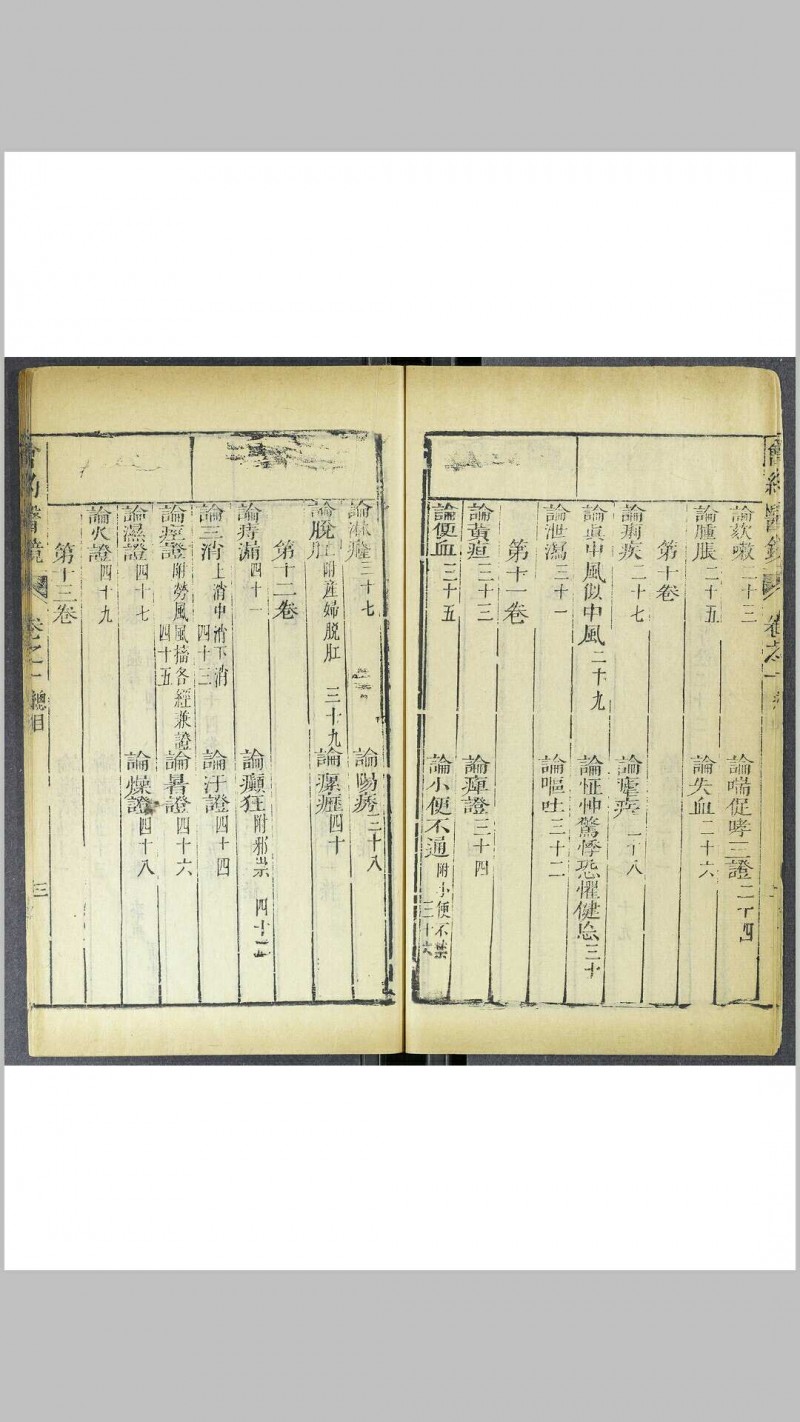 論欬嗽二十三 論喘促哮三證二十四
論腫脹二十五 論失血二十六
第十卷
論痢疾二十七 論瘧疾二十八
論眞中風似中風二十九 論怔忡驚悸恐懼健忘三十
論泄瀉三十一 論嘔吐三十二
第十一卷
論黃疸三十三 論痺證三十四
論便血三十五 論小便不通附小便不禁三十六
論淋癃三十七 論陽痿三十八
論脫肛附產婦脫肛 三十九 論瘰癧四十
第十二卷
論痔漏四十一 論癲狂附邪祟 四十二
論三消上消中消下消四十三 論汗證四十四
論痙證附勞風風搐各經兼證四十五 論暑證四十六
論濕證四十七 論燥證四十八
論火證四十九
第十三卷
會約醫鏡 卷之一總目 三